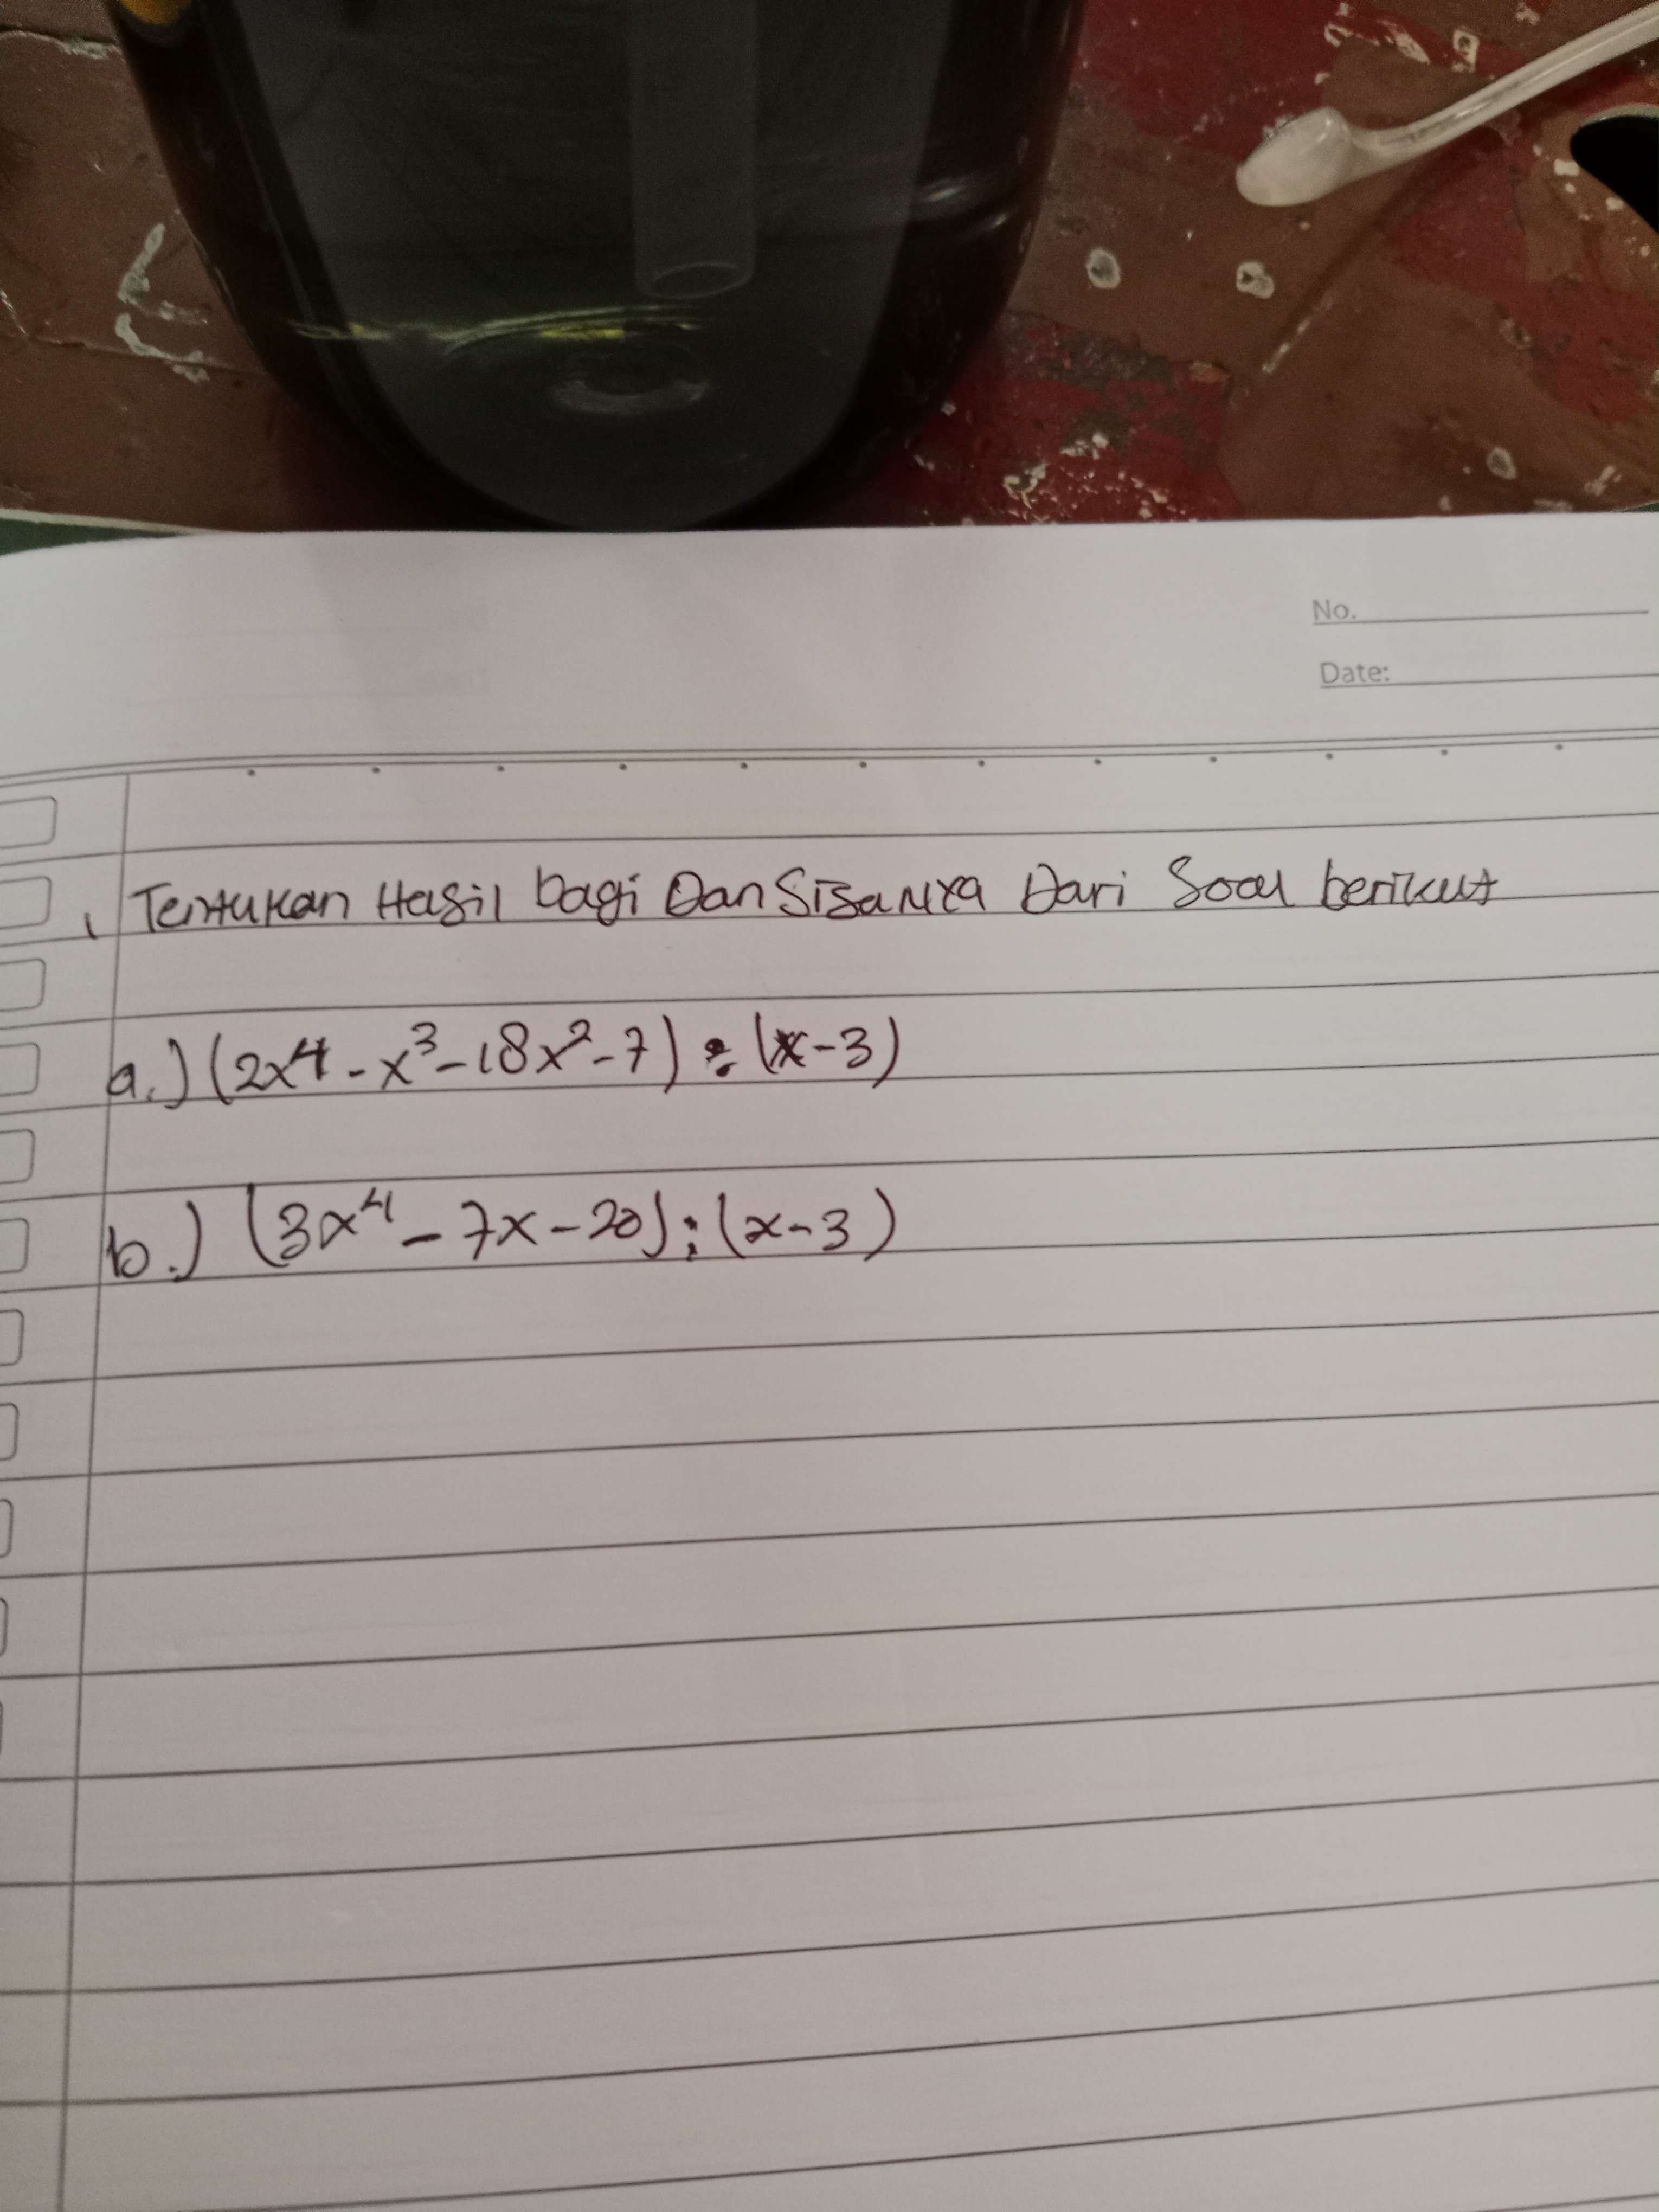 No.
Date:
1 Tentukan Hasil bagi Dan Sisanya Dari Soal berikut
a.) (2x⁴ - x³ - 18x² - 7) : (x - 3)
b.) (3x⁴ - 7x - 20) : (x - 3)